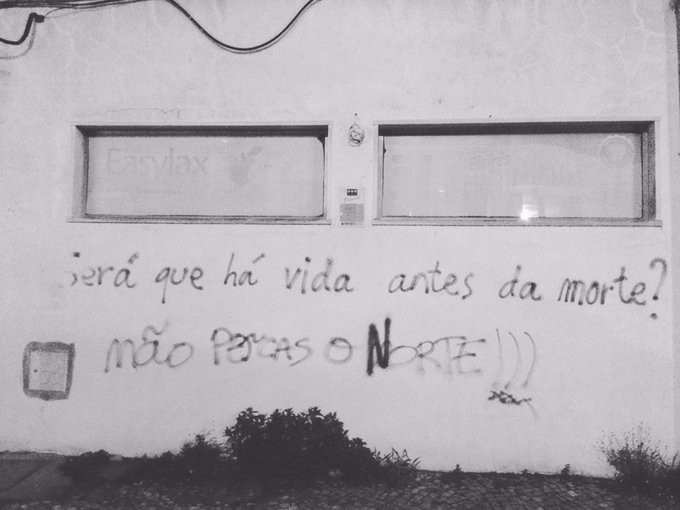 Easylax
Será que há vida antes da morte?
não PERCAS O NORTE!)))